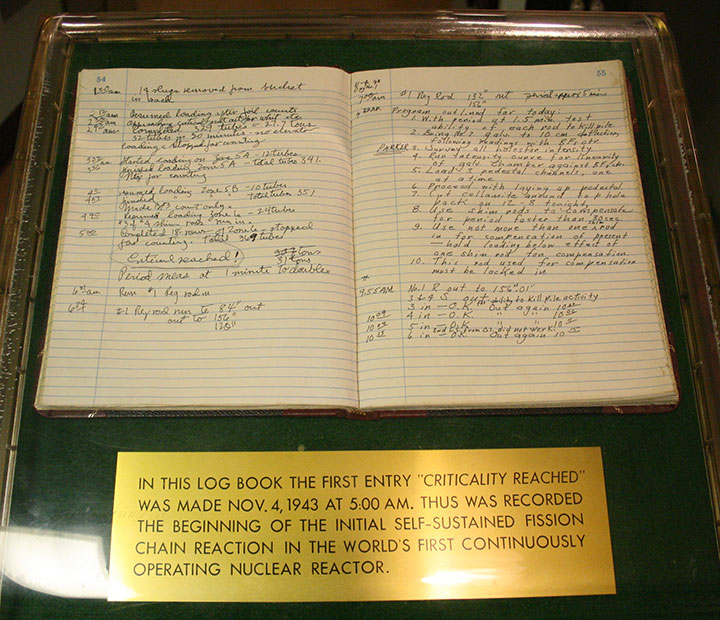 54
1 30 am 14 slugs removed from bucket
in back
Resumed loading after foil counts
Completed 324 tubes = 27.7 tons
32 tubes in 20 minutes - no elevator
loading & stopped for counting
Started loading Zone 5A - 12 tubes
finished loading Zone 5A - total tubes 341
for counting
resumed loading Zone 5B - 10 tubes
Finished " " total tubes 351
Made #3 count only.
4 40 Resumed loading Zone 6 - 24 tubes
#3 4 shim rods run in.
5 00 Completed 18 rows of Zone 6 - stopped
for counting. Total 369 tubes
Critical reached! 30 tons
Period meas. at 1 minute to double
6 am Run #1 Reg rod in
#1 Reg rod run to 84" out
out to 156"
120"
55
#1 Reg Rod 132" out period approx 5 min
156"
Program outlined for today
1. With period of 1.5 min test
ability of each rod to kill pile.
2. Bring No. 2 galv. to 10 cm deflection,
following readings with BF3 ctr
PARKER 3. Survey all holes for intensity
4. Run intensity curve for linearity
of galv chamber against BF3 ctr.
5. Load 2 pedestal channels, one
at a time
6. Proceed with laying up pedestal
7. Put collimator around top hole
back on 12-8 tonight
8. Use shim rods to compensate
for period faster than 30 sec
9. Use not more than one rod
in for compensation of present
- hold loading below effect of
one shim rod for compensation
10. This rod used for compensation
must be locked in
#
9.55 AM No. 1 R out to 156".01"
3 & 4 S out for ability to Kill Pile activity
10 09 3 in - O.K. Out again 10
4 in - O.K. " " 10
5 in - O.K. " " 10
10 13 6 in - O.K. Out again 10 15
IN THIS LOG BOOK THE FIRST ENTRY "CRITICALITY REACHED"
WAS MADE NOV. 4, 1943 AT 5:00 AM. THUS WAS RECORDED
THE BEGINNING OF THE INITIAL SELF-SUSTAINED FISSION
CHAIN REACTION IN THE WORLD'S FIRST CONTINUOUSLY
OPERATING NUCLEAR REACTOR.